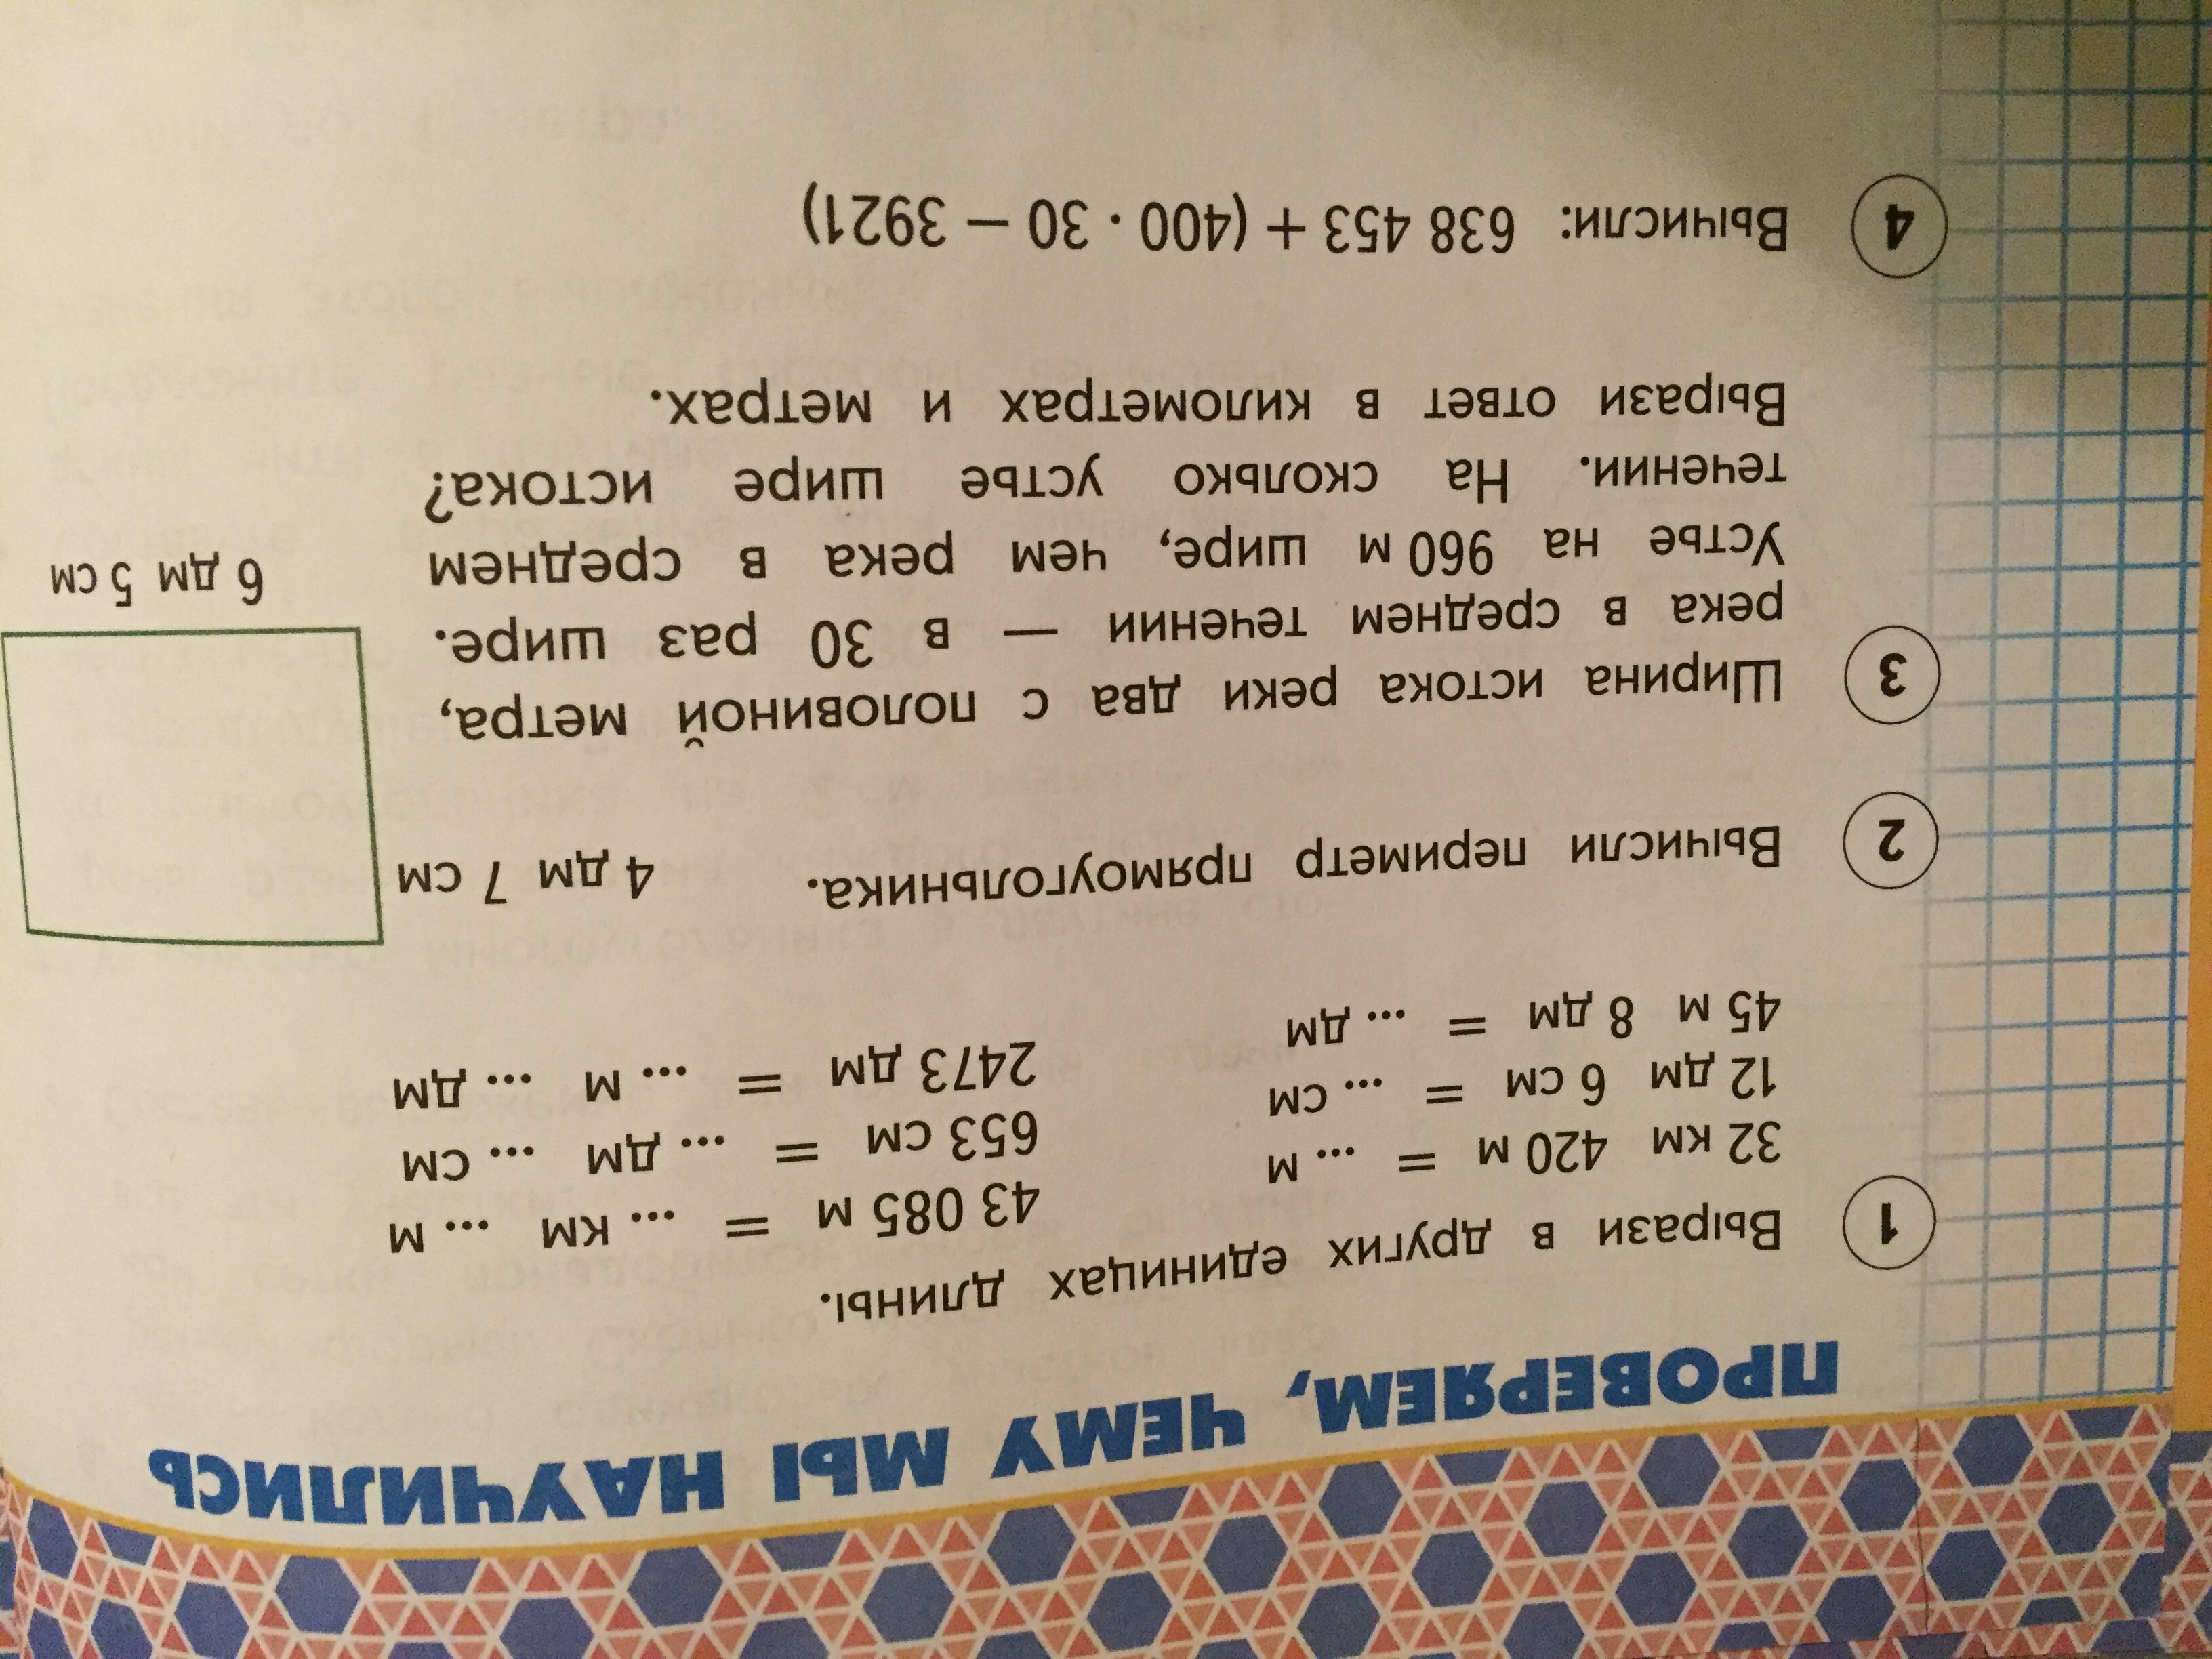 ПРОВЕРЯЕМ, ЧЕМУ МЫ НАУЧИЛИСЬ
1 Вырази в других единицах длины.
32 км 420 м = ... м 43 085 м = ... км ... м
12 дм 6 см = ... см 653 см = ... дм ... см
45 м 8 дм = ... дм 2473 дм = ... м ... дм
2 Вычисли периметр прямоугольника. 4 дм 7 см
6 дм 5 см
3 Ширина истока реки два с половиной метра,
река в среднем течении — в 30 раз шире.
Устье на 960 м шире, чем река в среднем
течении. На сколько устье шире истока?
Вырази ответ в километрах и метрах.
4 Вычисли: 638 453 + (400 · 30 − 3921)